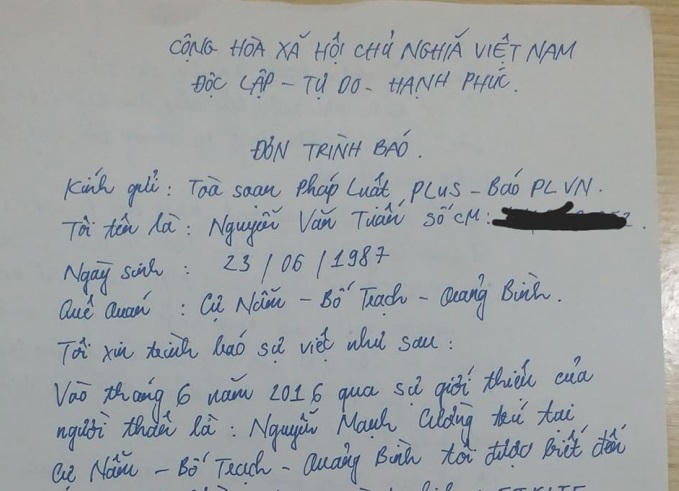 CỘNG HÒA XÃ HỘI CHỦ NGHĨA VIỆT NAM
ĐỘC LẬP - TỰ DO - HẠNH PHÚC.
ĐƠN TRÌNH BÁO.
Kính gửi: Toà soạn Pháp Luật PLus - Báo PLVN.
Tôi tên là: Nguyễn Văn Tuấn Số CM:
Ngày sinh : 23/06/1987
Quê Quán : Cự Nẫm - Bố Trạch - Quảng Bình.
Tôi xin trình báo sự việt như sau:
Vào tháng 6 năm 2016 qua sự giới thiệu của
người thân là: Nguyễn Mạnh Cường trú tại
Cự Nẫm - Bố Trạch - Quảng Bình tôi được biết đến